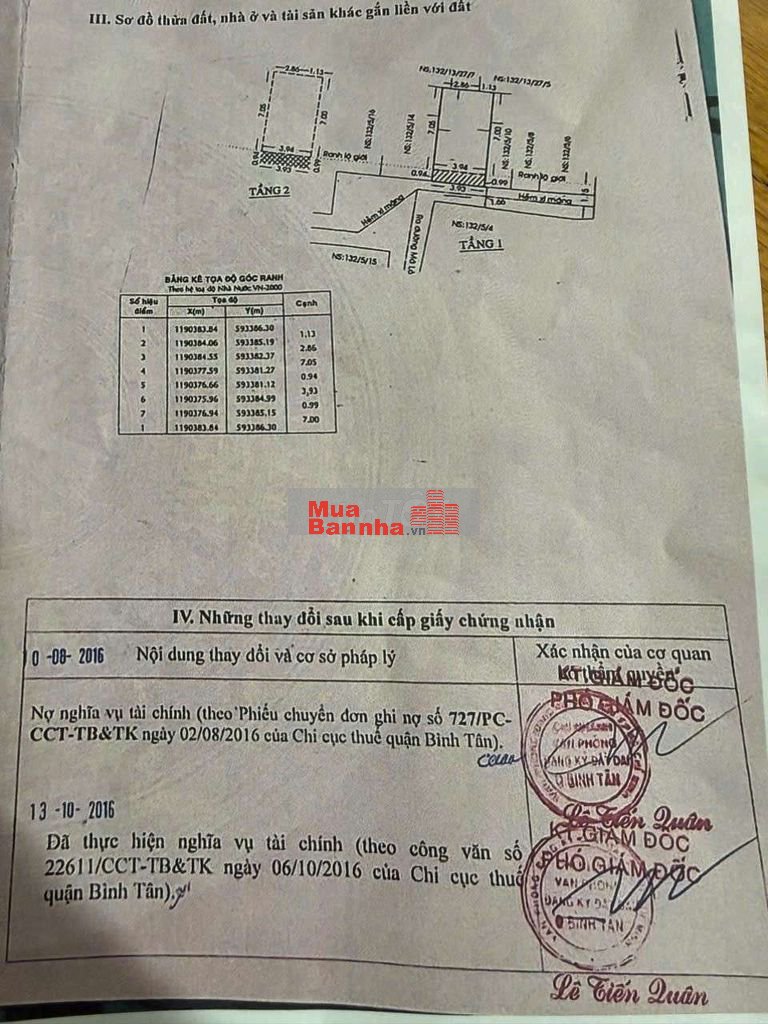 III. Sơ đồ thửa đất, nhà ở và tài sản khác gắn liền với đất
2.86 1.13
7.05
7.00
3.94
0.94
0.99
3.93
Ranh lộ giới
TẦNG 2
NS:132/13/27/7
NS:132/13/27/5
2.86 1.13
NS:132/5/16
NS:132/5/14
7.05
7.00
NS:132/5/10
NS:132/5/8
NS:132/5/6
3.94
0.94
0.99
3.93
Ranh lộ giới
1.66
1.15
Hẻm xi măng
Hẻm xi măng
Ra đường Mã Lò
NS:132/5/4
NS:132/5/15
TẦNG 1
BẢNG KÊ TỌA ĐỘ GÓC RANH
Theo hệ tọa độ Nhà Nước VN-2000
Số hiệu điểm Tọa độ Cạnh
X(m) Y(m)
1 1190383.84 593386.30
1.13
2 1190384.06 593385.19
2.86
3 1190384.55 593382.37
7.05
4 1190377.59 593381.27
0.94
5 1190376.66 593381.12
3,93
6 1190375.96 593384.99
0.99
7 1190376.94 593385.15
7.00
1 1190383.84 593386.30
Mua
Bannha.vn
IV. Những thay đổi sau khi cấp giấy chứng nhận
Nội dung thay đổi và cơ sở pháp lý
Xác nhận của cơ quan
có thẩm quyền
0 -08- 2016
KT.GIÁM ĐỐC
PHÓ GIÁM ĐỐC
Nợ nghĩa vụ tài chính (theo Phiếu chuyển đơn ghi nợ số 727/PC-
CCT-TB&TK ngày 02/08/2016 của Chi cục thuế quận Bình Tân).
CHI NHÁNH
VĂN PHÒNG
ĐĂNG KÝ ĐẤT ĐAI
Q BÌNH TÂN
Lê Tiến Quân
13 -10- 2016
KT.GIÁM ĐỐC
PHÓ GIÁM ĐỐC
Đã thực hiện nghĩa vụ tài chính (theo công văn số
22611/CCT-TB&TK ngày 06/10/2016 của Chi cục thuế
quận Bình Tân).
VĂN PHÒNG
ĐĂNG KÝ ĐẤT
Q BÌNH TÂN
Lê Tiến Quân